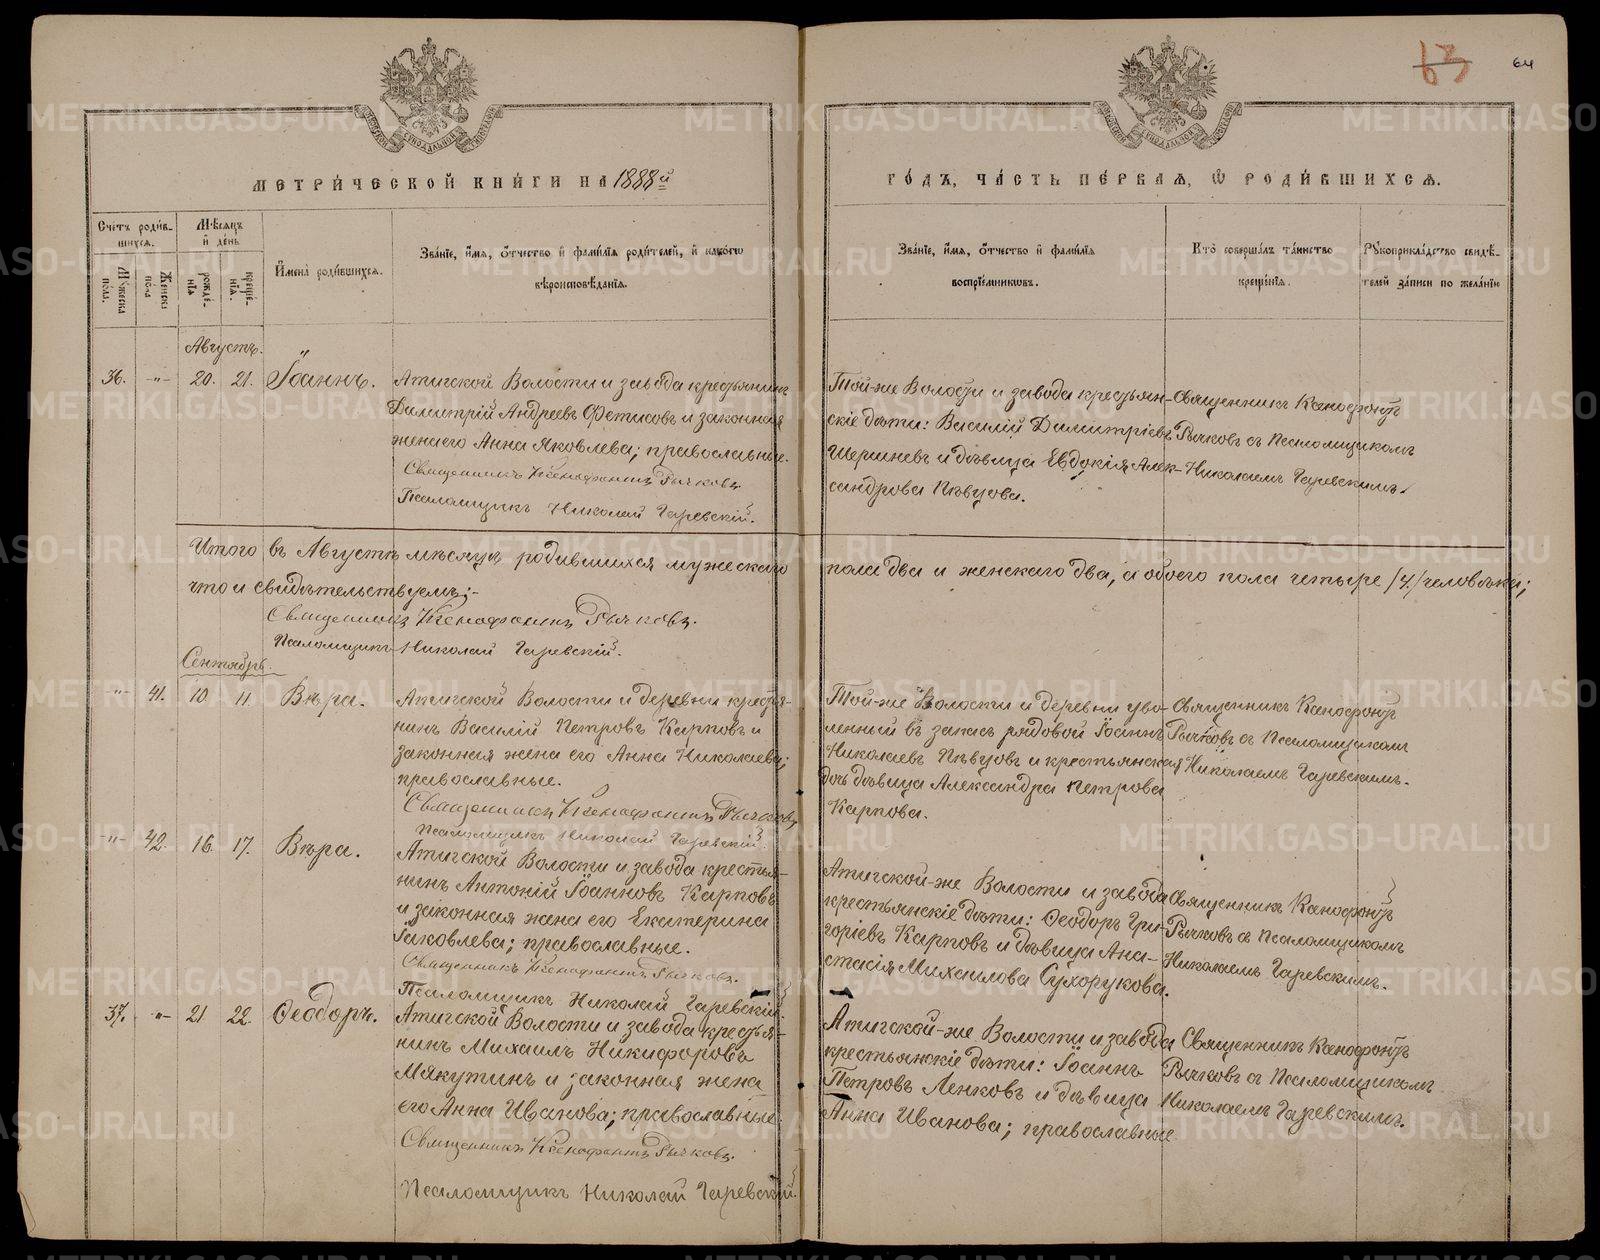 63 64
МЕТРИЧЕСКОЙ КНИГИ НА 1888й
ГОДЪ, ЧАСТЬ ПЕРВАЯ, Ѡ РОДИВШИХСЯ.
Счетъ родив-
шихся.
Мужеска пола.
Женска пола
Мѣсяцъ и день
рожде-
нія
креще-
нія.
Имена родившихся.
Званіе, имя, отчество и фамилія родителей, и какогѡ
вѣроисповѣданія.
Званіе, имя, отчество и фамилія
воспріемниковъ.
Кто совершалъ таинство
крещенія.
Рукоприкладство свидѣ-
телей записи по желанію
Августъ.
36. -"- 20. 21. Іоаннъ.
Атигской Волости и завода крестьянинъ
Димитрій Андреевъ Фетисовъ и законная
жена его Анна Яковлева; православные.
Священникъ Ксенофонтъ Рычковъ
Псаломщикъ Николай Гаревскій.
Той-же Волости и завода крестьян-
скіе дѣти: Василій Димитріевъ
Шершневъ и дѣвица Евдокія Алек-
сандрова Пѣвцова.
Священникъ Ксенофонтъ
Рычковъ съ Псаломщикомъ
Николаемъ Гаревскимъ.
Итого въ Августѣ мѣсяцѣ родившихся мужескаго
пола два и женскаго два, а обоего пола четыре /4/ человѣка;
что и свидѣтельствуемъ:-
Священникъ Ксенофонтъ Рычковъ.
Псаломщикъ Николай Гаревскій.
Сентябрь.
-"- 41. 10. 11. Вѣра.
Атигской Волости и деревни крестья-
нинъ Василій Петровъ Карповъ и
законная жена его Анна Николаева;
православные.
Священникъ Ксенофонтъ Рычковъ
Псаломщикъ Николай Гаревскій.
Той-же Волости и деревни уво-
ленный въ запасъ рядовой Іоаннъ
Николаевъ Пѣвцовъ и крестьянская
дочь дѣвица Александра Петрова
Карпова.
Священникъ Ксенофонтъ
Рычковъ съ Псаломщикомъ
Николаемъ Гаревскимъ.
-"- 42. 16. 17. Вѣра.
Атигской Волости и завода крестья-
нинъ Антоній Іоанновъ Карповъ
и законная жена его Екатерина
Іаковлева; православные.
Священникъ Ксенофонтъ Рычковъ.
Псаломщикъ Николай Гаревскій.
Атигской-же Волости и завода
крестьянскіе дѣти: Ѳеодоръ Гри-
горіевъ Карповъ и дѣвица Ана-
стасія Михаилова Сухорукова.
Священникъ Ксенофонтъ
Рычковъ съ Псаломщикомъ
Николаемъ Гаревскимъ.
37. -"- 21. 22. Ѳеодоръ.
Атигской Волости и завода крестья-
нинъ Михаилъ Никифоровъ
Мякутинъ и законная жена
его Анна Иванова; православные.
Священникъ Ксенофонтъ Рычковъ.
Псаломщикъ Николай Гаревскій.
Атигской-же Волости и завода
крестьянскіе дѣти: Іоаннъ
Петровъ Ленковъ и дѣвица
Анна Иванова; православные
Священникъ Ксенофонтъ
Рычковъ съ Псаломщикомъ
Николаемъ Гаревскимъ.
METRIKI.GASO-URAL.RU